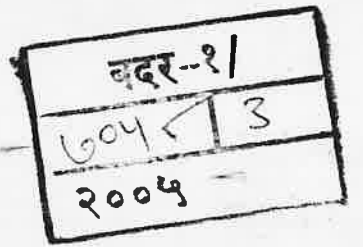 बदर--१/
७०५८ | 3
२००५